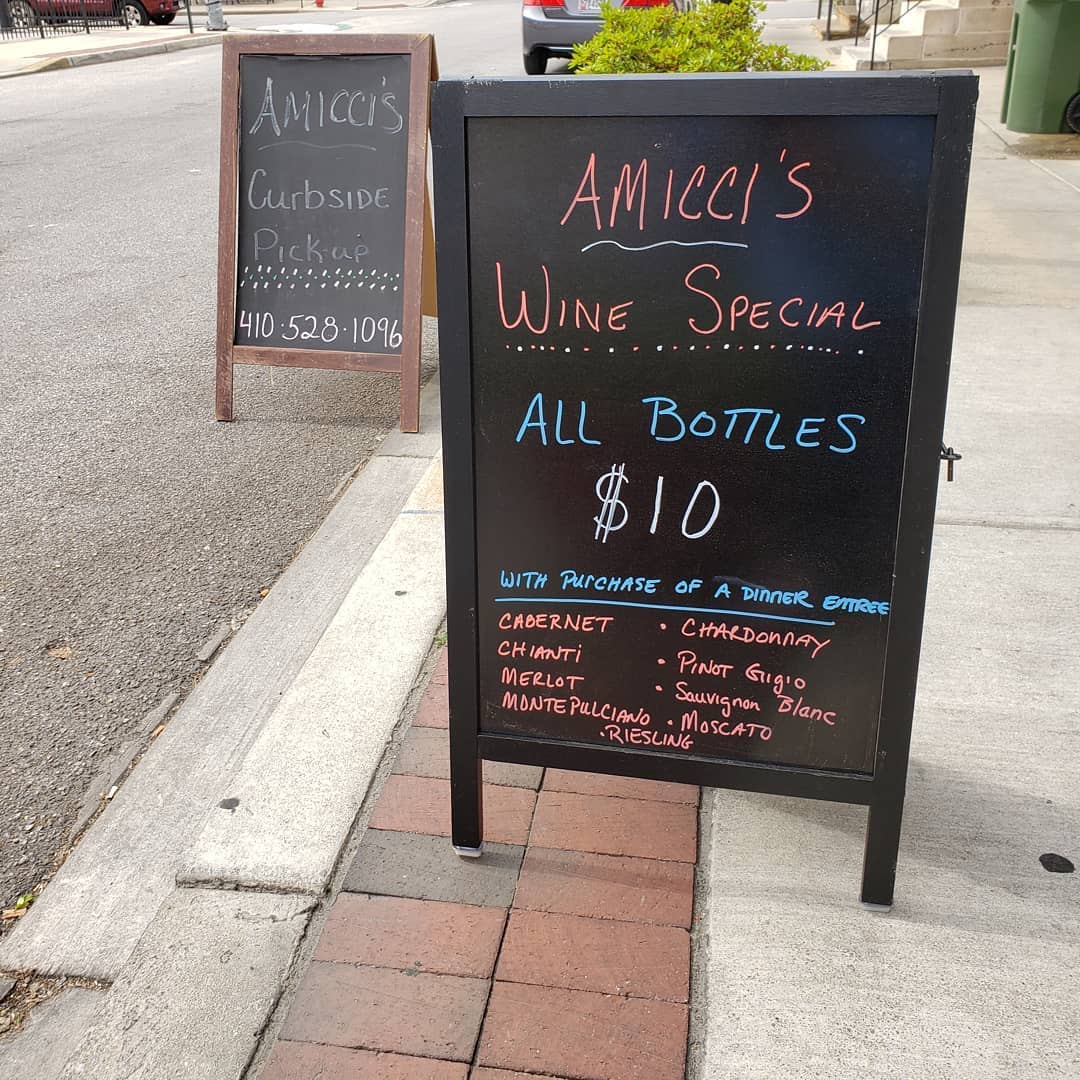 AMICCI'S
CurbSIDE
Pick-up
410·528·1096
AMICCI'S
WINE SPECIAL
ALL BOTTLES
$10
WITH PUrCHASE OF A DINNER ENTREE
CABERNET • CHARDONNAY
CHIANTi • PiNOT GrigiO
MERLOT • Sauvignon Blanc
MONTEPULCIANO • MOSCATO
• RIESLING